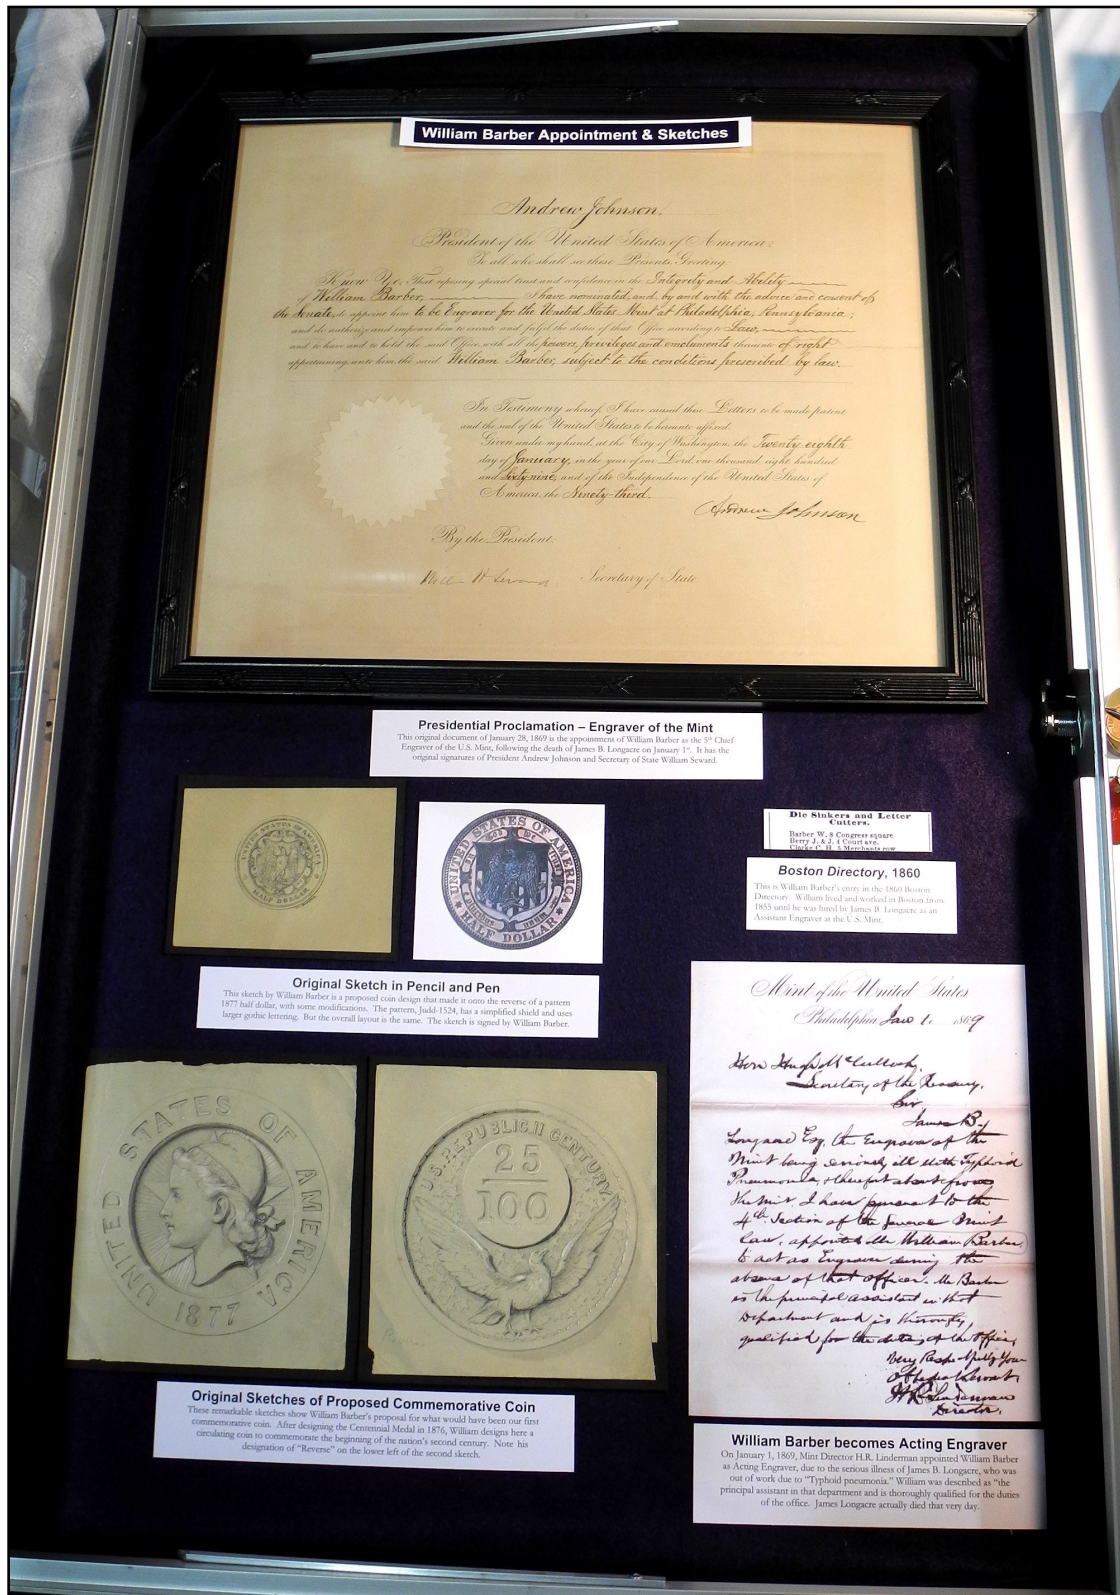 William Barber Appointment & Sketches
Andrew Johnson,
President of the United States of America:
To all who shall see these Presents, Greeting
Know Ye, That reposing special trust and confidence in the Integrity and Ability
of William Barber, I have nominated, and, by and with the advice and consent of
the Senate, do appoint him to be Engraver for the United States Mint at Philadelphia, Pennsylvania;
and do authorize and empower him to execute and fulfil the duties of that Office according to Law,
and to have and to hold the said Office, with all the powers, privileges and emoluments thereunto of right
appertaining unto him, the said William Barber, subject to the conditions prescribed by law.
In Testimony whereof, I have caused these Letters to be made patent
and the seal of the United States to be hereunto affixed.
Given under my hand, at the City of Washington, the Twenty-eighth
day of January, in the year of our Lord, one thousand eight hundred
and Sixty-nine, and of the Independence of the United States of
America, the Ninety-third.
Andrew Johnson
By the President:
William H Seward Secretary of State
Presidential Proclamation – Engraver of the Mint
This original document of January 28, 1869 is the appointment of William Barber as the 5th Chief
Engraver of the U.S. Mint, following the death of James B. Longacre on January 1st. It has the
original signatures of President Andrew Johnson and Secretary of State William Seward.
UNITED STATES OF AMERICA
HALF DOLLAR
UNITED STATES OF AMERICA
HALF DOLLAR
Die Sinkers and Letter
Cutters.
Barber W. 8 Congress square
Berry J. & J. 4 Court ave.
Clarke C. H. 5 Merchants row
Boston Directory, 1860
This is William Barber's entry in the 1860 Boston
Directory. William lived and worked in Boston from
1855 until he was hired by James B. Longacre as an
Assistant Engraver at the U.S. Mint.
Original Sketch in Pencil and Pen
This sketch by William Barber is a proposed coin design that made it onto the reverse of a pattern
1877 half dollar, with some modifications. The pattern, Judd-1524, has a simplified shield and uses
larger gothic lettering. But the overall layout is the same. The sketch is signed by William Barber.
UNITED STATES OF AMERICA
1877
U.S. REPUBLIC, II CENTURY.
25
100
Original Sketches of Proposed Commemorative Coin
These remarkable sketches show William Barber's proposal for what would have been our first
commemorative coin. After designing the Centennial Medal in 1876, William designs here a
circulating coin to commemorate the beginning of the nation's second century. Note his
designation of "Reverse" on the lower left of the second sketch.
Mint of the United States
Philadelphia Jan 1. 1869
Hon Hugh McCulloch,
Secretary of the Treasury,
Sir
James B.
Longacre Esq, the Engraver of the
Mint being seriously ill with Typhoid
Pneumonia, & therefore absent from
the Mint, I have pursuant to the
4th Section of the General Mint
law, appointed Mr William Barber
to act as Engraver during the
absence of that officer. Mr Barber
is the principal assistant in that
Department and is thoroughly
qualified for the duties of the office,
Very Respectfully Your
Obedient Servant,
H R Linderman
Director.
William Barber becomes Acting Engraver
On January 1, 1869, Mint Director H.R. Linderman appointed William Barber
as Acting Engraver, due to the serious illness of James B. Longacre, who was
out of work due to "Typhoid pneumonia." William was described as "the
principal assistant in that department and is thoroughly qualified for the duties
of the office. James Longacre actually died that very day.